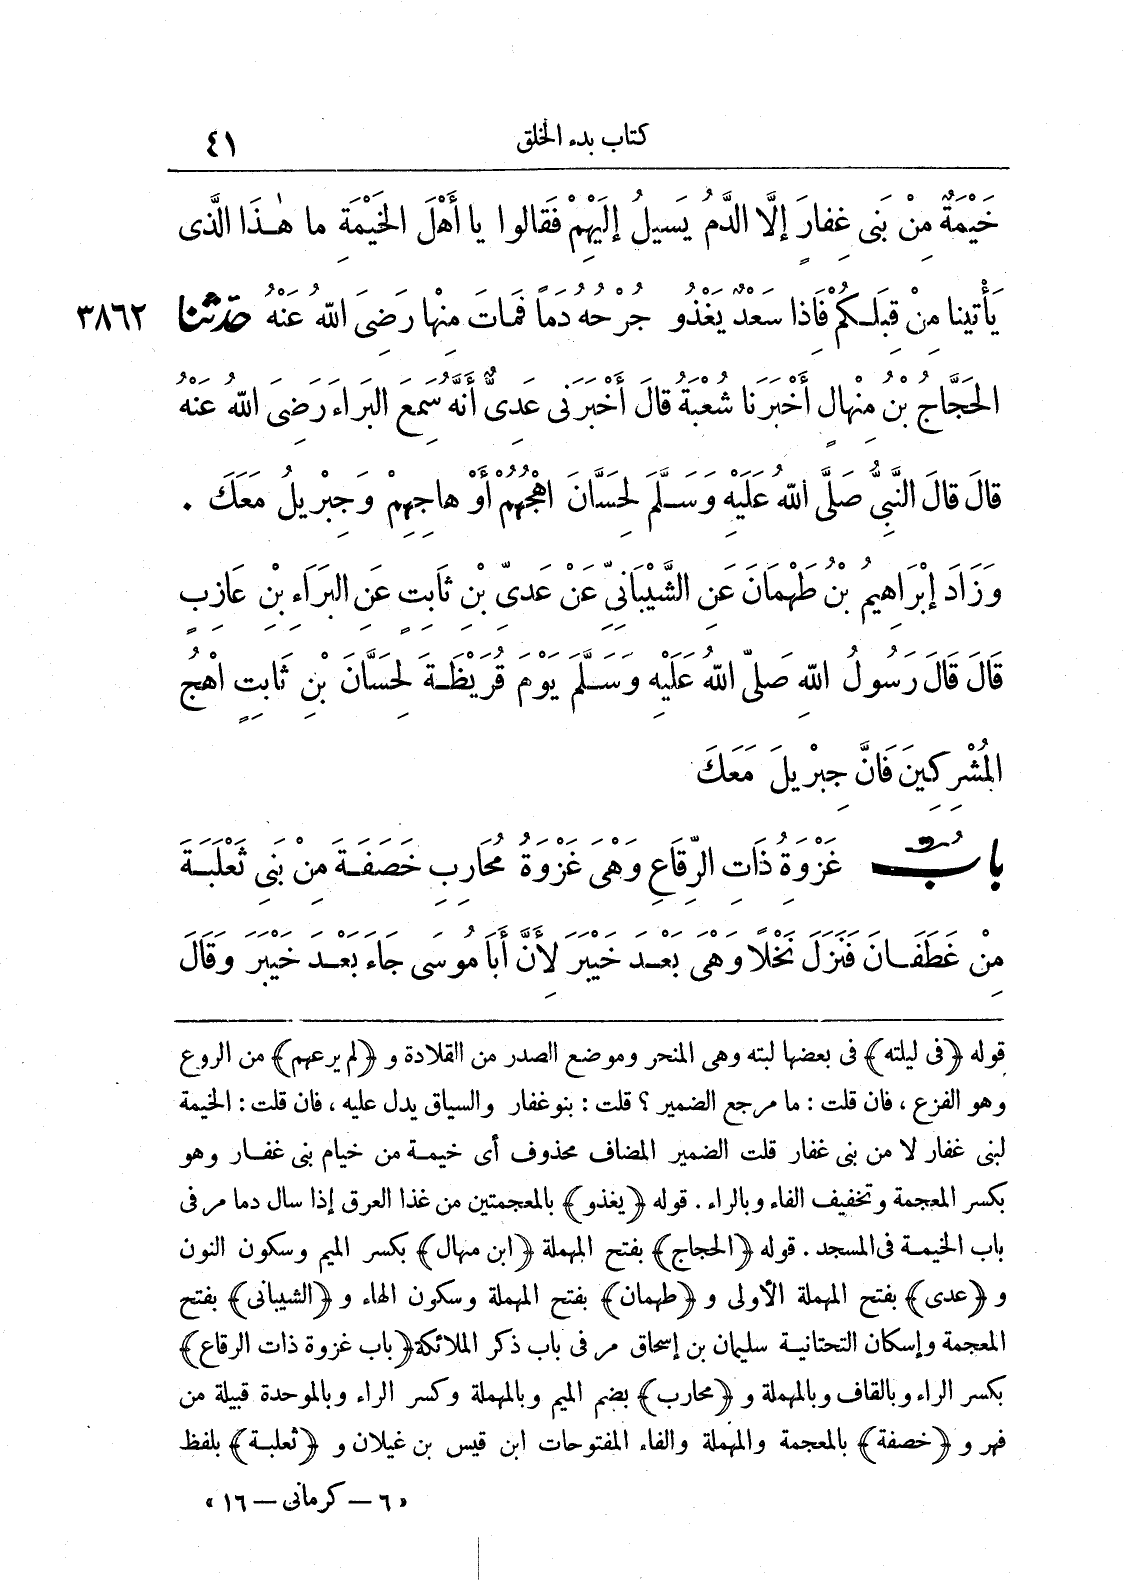 كتاب بدء الخلق ٤١
خَيْمَةٌ مِنْ بَنِي غِفَارٍ إِلَّا الدَّمُ يَسِيلُ إِلَيْهِمْ فَقَالُوا يا أَهْلَ الخَيْمَةِ ما هٰذَا الَّذى
يَأْتِينا مِنْ قِبَلِكُمْ فَاِذا سَعْدٌ يَغْذُو جُرْحُهُ دَماً فَمَاتَ مِنْها رَضِىَ اللهُ عَنْهُ حدّثنا ٣٨٦٢
الحَجَّاجُ بْنُ مِنْهالٍ أَخْبَرَنَا شُعْبَةُ قالَ أَخْبَرَنى عَدِىٌّ أَنَّهُ سَمِعَ البَرَاءَ رَضِىَ اللهُ عَنْهُ
قالَ قالَ النَّبِيُّ صَلَّى اللهُ عَلَيْهِ وَسَلَّمَ لِحَسَّانَ اهْجُهُمْ أَوْ هاجِهِمْ وَجِبْرِيلُ مَعَكَ .
وَزَادَ إِبْرَاهِيمُ بْنُ طَهْمَانَ عَنِ الشَّيْبَانِيِّ عَنْ عَدِىِّ بْنِ ثَابِتٍ عَنِ البَرَاءِ بْنِ عَازِبٍ
قَالَ قَالَ رَسُولُ اللهِ صَلَّى اللهُ عَلَيْهِ وَسَلَّمَ يَوْمَ قُرَيْظَةَ لِحَسَّانَ بْنِ ثَابِتٍ اهْجُ
المُشْرِكِينَ فَانَّ جِبْرِيلَ مَعَكَ
بابُ غَزْوَةُ ذَاتِ الرِّقَاعِ وَهْىَ غَزْوَةُ مُحَارِبِ خَصَفَةَ مِنْ بَنِي ثَعْلَبَةَ
مِنْ غَطَفَانَ فَنَزَلَ نَخْلًا وَهْىَ بَعْدَ خَيْبَرَ لِأَنَّ أَبَا مُوسَى جَاءَ بَعْدَ خَيْبَرَ وَقَالَ
قوله ﴿فى ليلته﴾ فى بعضها لبته وهى المنحر وموضع الصدر من القلادة و ﴿لم يرعهم﴾ من الروع
وهو الفزع ، فان قلت : ما مرجع الضمير ؟ قلت : بنو غفار والسياق يدل عليه ، فان قلت : الخيمة
لبنى غفار لا من بنى غفار قلت الضمير المضاف محذوف أى خيمة من خيام بنى غفار وهو
بكسر المعجمة وتخفيف الفاء وبالراء . قوله ﴿يغذو﴾ بالمعجمتين من غذا العرق إذا سال دما مر فى
باب الخيمة فى المسجد . قوله ﴿الحجاج﴾ بفتح المهملة ﴿ابن منهال﴾ بكسر الميم وسكون النون
و ﴿عدى﴾ بفتح المهملة الأولى و ﴿طهمان﴾ بفتح المهملة وسكون الهاء و ﴿الشيبانى﴾ بفتح
المعجمة وإسكان التحتانية سليمان بن إسحاق مر فى باب ذكر الملائكة ﴿باب غزوة ذات الرقاع﴾
بكسر الراء وبالقاف وبالمهملة و ﴿محارب﴾ بضم الميم وبالمهملة وكسر الراء وبالموحدة قبيلة من
فهر و ﴿خصفة﴾ بالمعجمة والمهملة والفاء المفتوحات ابن قيس بن غيلان و ﴿ثعلبة﴾ بلفظ
« ٦ – كرمانى – ١٦ »